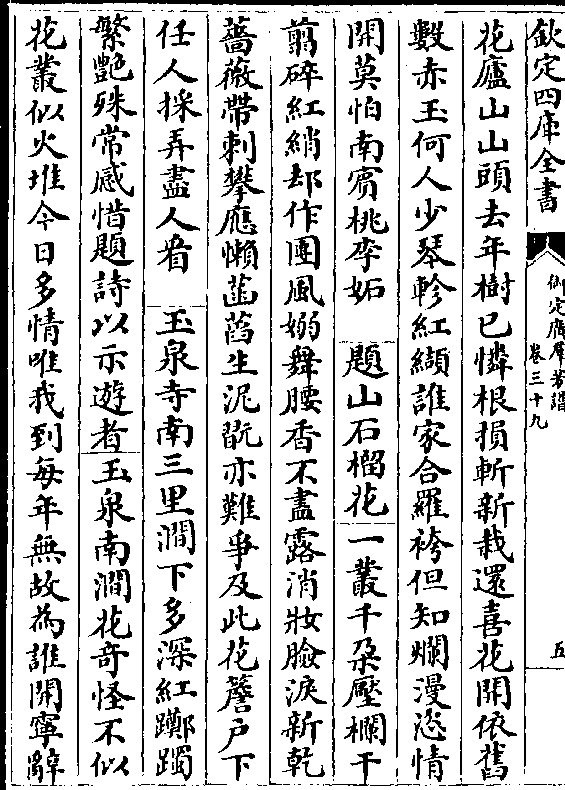 欽定四庫全書
御定廣羣芳譜
卷三十九
五
花廬山山頭去年樹已憐根損斬新栽還喜花開依舊
數赤玉何人少琴軫紅纈誰家合羅袴但知爛漫恣情
開莫怕南賓桃李妬 題山石榴花 一叢千朶壓欄干
翦碎紅綃却作團風嫋舞腰香不盡露消妝臉淚新乾
薔薇帶刺攀應懶菡萏生泥翫亦難爭及此花簷戶下
任人採弄盡人看 玉泉寺南三里澗下多深紅躑躅
繁艷殊常感惜題詩以示遊者 玉泉南澗花奇怪不似
花叢似火堆今日多情唯我到每年無故為誰開寧辭